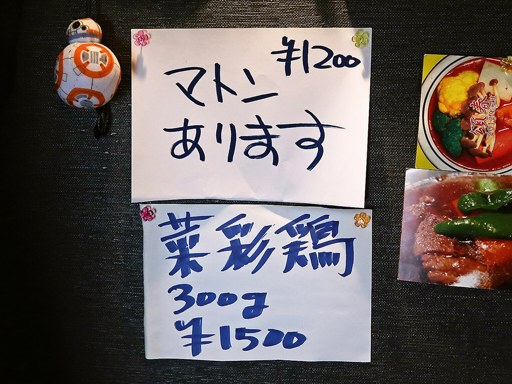 ¥1200
マトン
あります
菜彩鶏
300g
¥1500